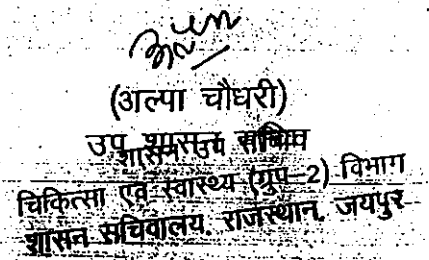 (अल्पा चौधरी)
उप शासन सचिव
शासन उप सचिव
चिकित्सा एवं स्वास्थ्य (ग्रुप-2) विभाग
शासन सचिवालय, राजस्थान, जयपुर